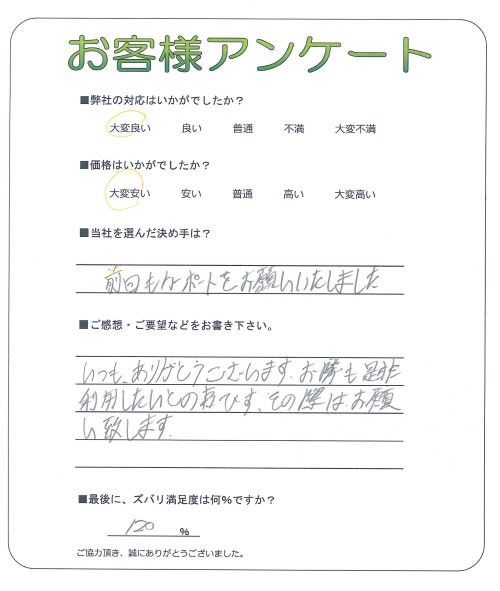 お客様アンケート
■弊社の対応はいかがでしたか？
大変良い 良い 普通 不満 大変不満
■価格はいかがでしたか？
大変安い 安い 普通 高い 大変高い
■当社を選んだ決め手は？
前回もサポートをお願いいたしました
■ご感想・ご要望などをお書き下さい。
いつも、ありがとうございます。お隣も是非
利用したいとの事です、その際は、お願
い致します。
■最後に、ズバリ満足度は何％ですか？
120 ％
ご協力頂き、誠にありがとうございました。